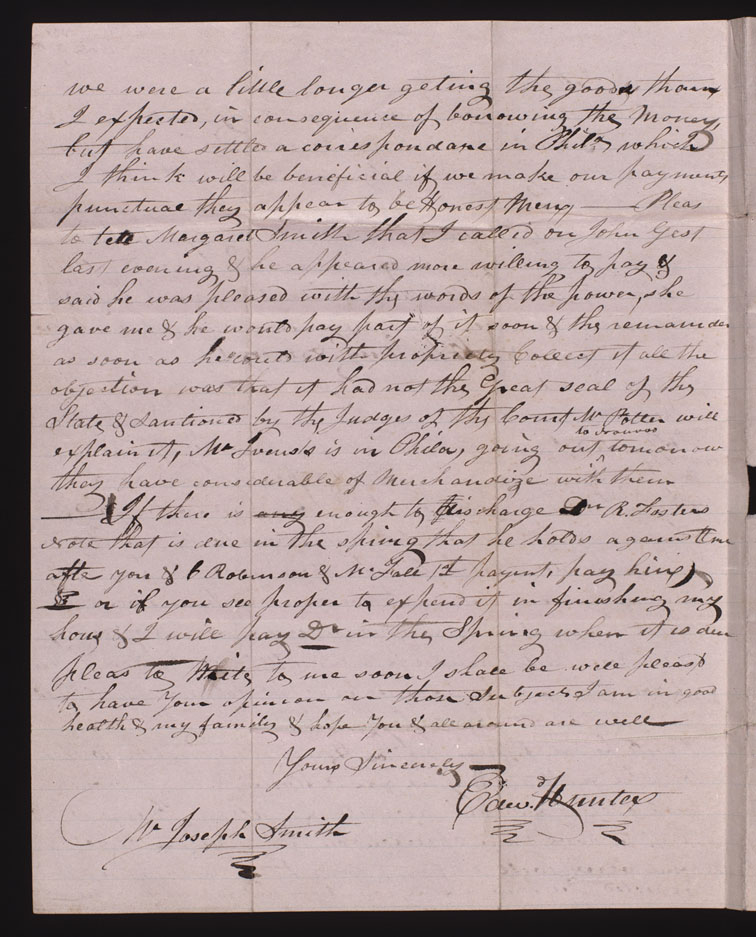 we were a little longer geting the goods than
I expected, in consequence of borrowing the Money,
but have settled a correspondance in Phila which
I think will be beneficial if we make our payments
punctual they appear to be Honest Meny — Pleas
to tell Margaret Smith that I called on John Gest
last evening & he appeared more willing to pay &
said he was pleased with the words of the power, she
gave me & he would pay part of it soon & the remainder
as soon as he could with propriety Collect it all the
objection was that it had not the Great seal of the
State & Santioned by the Judges of the Court Mr Potter will
explain it, Mr Ivens is in Phila, going out to nauvoo tomorrow
they have considerable of Merchandize with them
— If there is any enough to discharge Dr R. Fosters
Note that is due in the spring that he holds against me
afte you & C Robinson & Mc Fall 1t payent, pay him,
& or if you see proper to expend it in finishing my
hous & I will pay Dr in the Spring when it is due
pleas to Write to me soon I shall be well pleasd
to have your opinion on those Subjects I am in good
health & my family & hope You & all around are well
Yours Sincerely
Edwd Hunter
Mr Joseph Smith